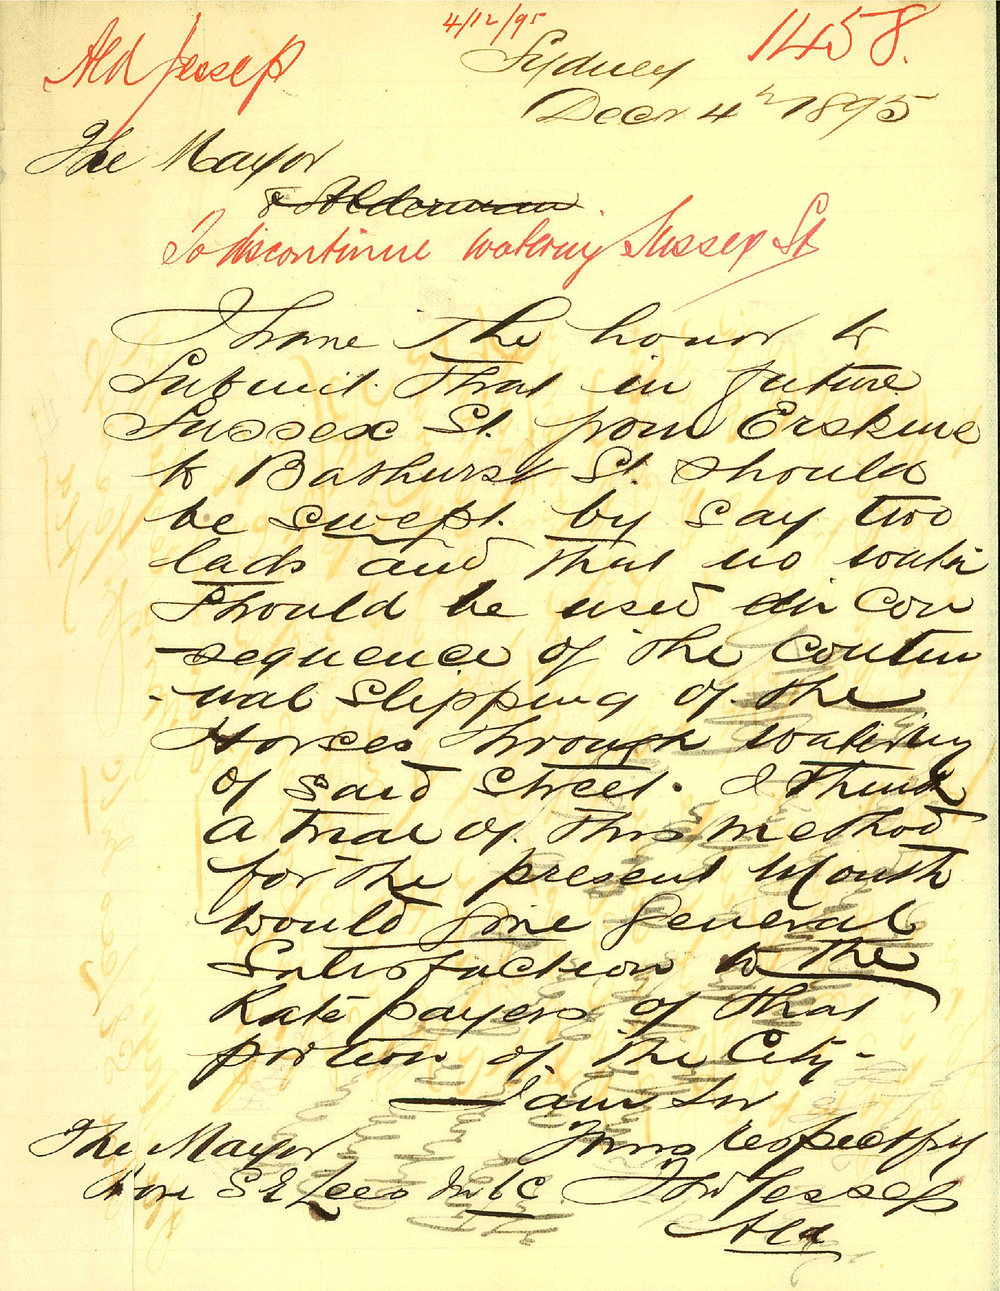 4/12/95
Ald Jessep
1458.
Sydney
Decr 4th 1895
The Mayor
& Alderman
To discontinue watering Sussex St
I have the honor to
Submit that in future
Sussex St. from Erskine
to Bathurst St. should
be swept by say two
lads and that no water
should be used in con
-sequence of the contin
-ual slipping of the
Horses through watering
of said street. I think
a trial of this method
for the present Month
would give general
Satisfaction to the
Rate payers of that
portion of the City-
I am Sir
The Mayor
Yours respectfy
Hon S E Lees M L C
Thos Jessep
Ald